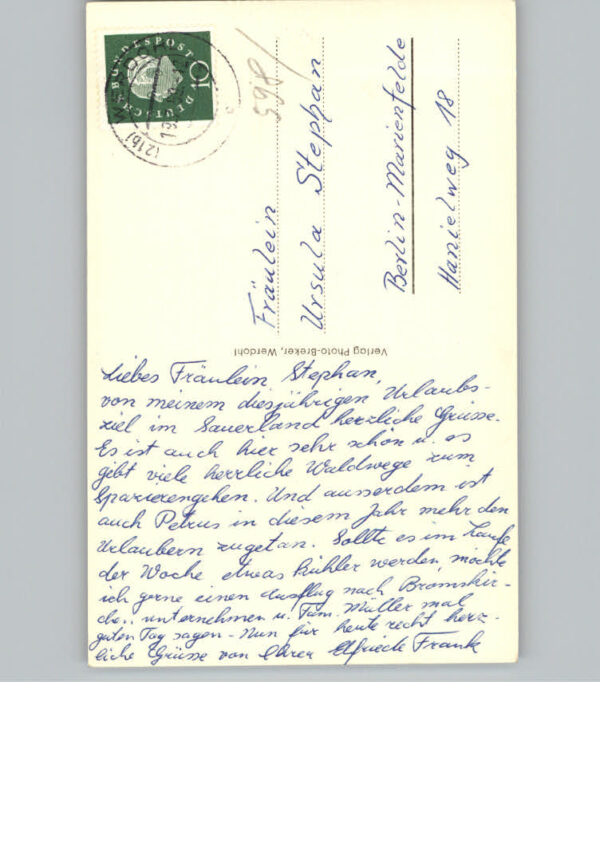 DEUTSCHE BUNDESPOST
10
(21b) WERDOHL
598/
Fräulein
Ursula Stephan
Berlin-Marienfelde
Hanielweg 18
Verlag Photo-Breker, Werdohl
Liebes Fräulein Stephan,
von meinem diesjährigen Urlaubs-
ziel im Sauerland herzliche Grüsse.
Es ist auch hier sehr schön u. es
gibt viele herrliche Waldwege zum
Spazierengehen. Und ausserdem ist
auch Petrus in diesem Jahr mehr den
Urlaubern zugetan. Sollte es im Laufe
der Woche etwas kühler werden, möchte
ich gerne einen Ausflug nach Bromskir-
chen unternehmen u. Fam. Müller mal
guten Tag sagen - Nun für heute recht herz-
liche Grüsse von Ihrer Elfriede Frank